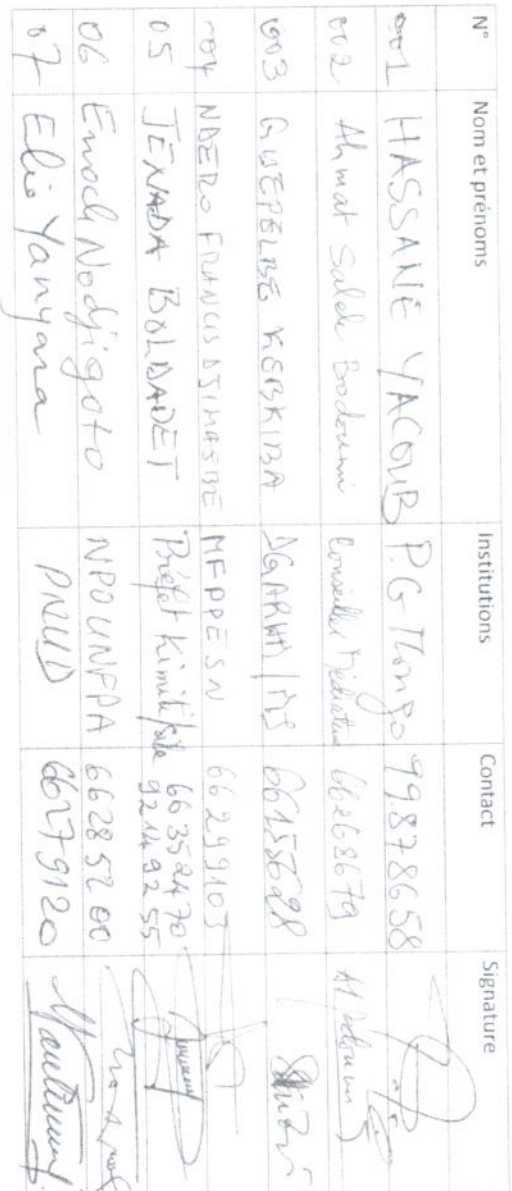 N° Nom et prénoms Institutions Contact Signature
001 HASSANE YACOUB P.G Mongo 99878658
002 Ahmat Saleh Bodoumi Conseiller 66268679
003 GUEPELBE KEBKIBA 66155628
004 NDERO FRANCIS DJIMASBE MFPPESN 66299103
05 JENADA BOLDADET Préfet 66352470
92149255
06 Enoch Nodjigoto NPO UNFPA 66285200
07 Elie Yanyana PNUD 66279120